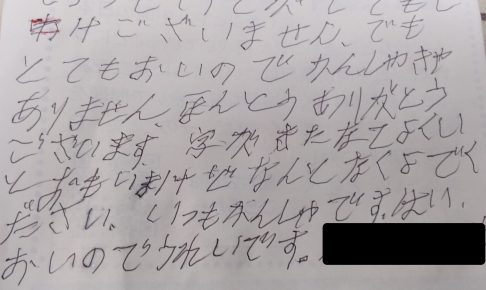 わけございません、でも
とてもおいのでかんしゃきゃ
ありません、ほんとうありがとう
ございます、字がきたなてよくい
とおもいまけぜなんとなくよでく
ださい。いつもかんしゃです。はい、
おいのでうれしいです。